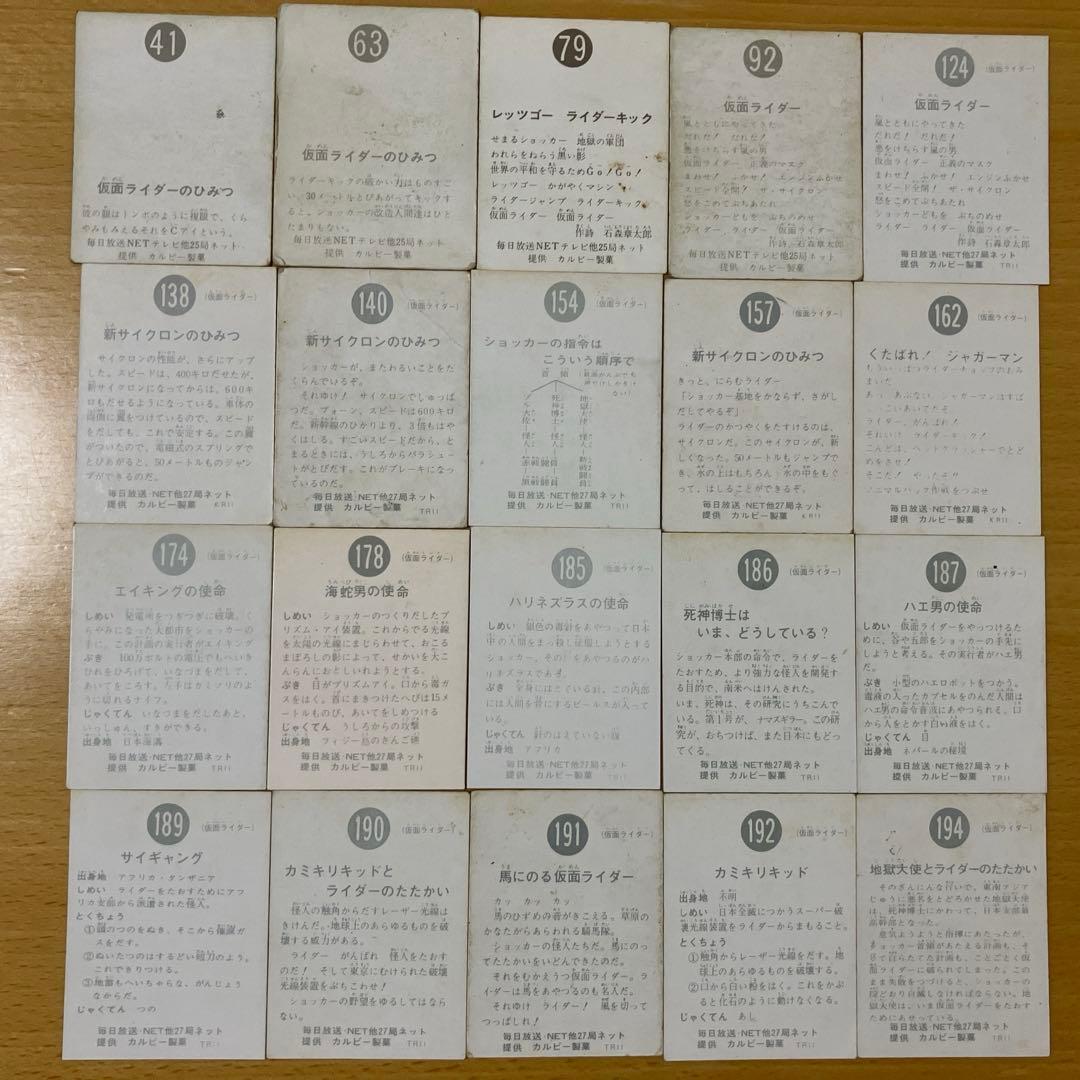 41
仮面ライダーのひみつ
彼の眼はトンボのように複眼で、くら
やみもみえるそれをCアイという。
毎日放送NETテレビ他25局ネット
提供 カルビー製菓
63
仮面ライダーのひみつ
ライダーキックの破かい力はものすご
い。30メートルとびあがってキックす
ると。ショッカーの改造人間達はひと
たまりもない。
毎日放送NETテレビ他25局ネット
提供 カルビー製菓
79
レッツゴー ライダーキック
せまるショッカー 地獄の軍団
われらをねらう黒い影
世界の平和を守るためGo!Go!
レッツゴー かがやくマシン
ライダージャンプ ライダーキック
仮面ライダー 仮面ライダー
作詩 石森章太郎
毎日放送NETテレビ他25局ネット
提供 カルビー製菓
92
仮面ライダー
嵐とともにやってきた
だれだ! だれだ!
悪をけちらす嵐の男
仮面ライダー 正義のマスク
まわせ! ふかせ! エンジンふかせ
スピード全開! ザ・サイクロン
怒をこめてぶちあたれ
ショッカーどもを ぶちのめせ
ライダー ライダー 仮面ライダー
作詩 石森章太郎
毎日放送NETテレビ他25局ネット
提供 カルビー製菓
124
(仮面ライダー)
仮面ライダー
嵐とともにやってきた
だれだ! だれだ!
悪をけちらす嵐の男
仮面ライダー 正義のマスク
まわせ! ふかせ! エンジンふかせ
スピード全開! ザ・サイクロン
怒をこめてぶちあたれ
ショッカーどもを ぶちのめせ
ライダー ライダー 仮面ライダー
作詩 石森章太郎
毎日放送・NET他27局ネット
提供 カルビー製菓 TR11
138
(仮面ライダー)
新サイクロンのひみつ
サイクロンの性能が、さらにアップ
した。スピードは、400キロだせたが、
新サイクロンになってからは、600キ
ロもだせるようになっている。車体の
両側に翼をつけているので、スピード
をだしても、これで安定する。この翼
がついたので、電磁式のスプリングで
とびあがると、50メートルものジャン
プができるのだ。
毎日放送・NET他27局ネット
提供 カルビー製菓 KR11
140
(仮面ライダー)
新サイクロンのひみつ
ショッカーが、またわるいことをた
くらんでいるぞ。
それゆけ! サイクロンでしゅっぱ
つだ。ブォーン、スピードは600キロ
だ。新幹線のひかりより、3倍もはや
くはしる。すごいスピードだから、と
まるときには、うしろからパラシュー
トがとびだす。これがブレーキになっ
ているのだ。
毎日放送・NET他27局ネット
提供 カルビー製菓 TR11
154
(仮面ライダー)
ショッカーの指令は
こういう順序で
首領
ゾル大佐
死神博士
地獄大使
怪人
怪人
怪人
赤戦闘員
黒戦闘員
新戦闘員
毎日放送・NET他27局ネット
提供 カルビー製菓 TR11
157
(仮面ライダー)
新サイクロンのひみつ
きっと、にらむライダー
「ショッカー基地をかならず、さがし
だしてやるぞ」
ライダーのかつやくをたすけるのは、
サイクロンだ。このサイクロンが、新
しくなった。50メートルもジャンプで
き、水の上はもちろん、水の中をもぐ
って、はしることができるぞ。
毎日放送・NET他27局ネット
提供 カルビー製菓 KR11
162
(仮面ライダー)
くたばれ! ジャガーマン
もういっぱつライダーチョップのおみ
まいだ
あっ あぶない、ジャガーマンはすば
ライダー、がんばれ!
それいけ ライダーキック!
こんどは、ヘッドクラッシャーでとど
めをさせ!
アニマルパック作戦をつぶせ
毎日放送・NET他27局ネット
提供 カルビー製菓 KR11
174
(仮面ライダー)
エイキングの使命
しめい 発電所をつぎつぎに破壊。く
らやみになった大都市をショッカーの
手に。この計画の実行者がエイキング
ぶき 100万ボルトの電圧でもへいき
ひれをひろげて、いなづまをだして、
あいてをころす。左手はカミソリのよ
うに切れるナイフ。
じゃくてん いなづまをだしたあと、
いっしゅん、すきができる。
出身地 日本海溝
毎日放送・NET他27局ネット
提供 カルビー製菓 TR11
178
(仮面ライダー)
海蛇男の使命
しめい ショッカーのつくりだしたプ
リズム・アイ装置。これからでる光線
を太陽の光線にまじらわせて、おこる
まぼろしの影によって、せかいを大こ
んらんにおとしいれようとする。
ぶき 目がプリズムアイ。口から毒ガ
スをはく。首にまきつけたへびは15メ
ートルものび、あいてをしめつける
じゃくてん うしろからの攻撃
出身地 フィジー島のさんご礁
毎日放送・NET他27局ネット
提供 カルビー製菓 TR11
185
(仮面ライダー)
ハリネズラスの使命
しめい 銀色の毒針をあやつって日本
中の人間をまっ殺し征服しようとする
ショッカー。その針をあやつるのがハ
リネズラスである。
ぶき 全身にはえている針、この内部
には人間を骨にするビールスが入って
いる。
じゃくてん 針のはえていない顔
出身地 アフリカ
毎日放送・NET他27局ネット
提供 カルビー製菓 TR11
186
(仮面ライダー)
死神博士は
いま、どうしている?
ショッカー本部の命令で、ライダーを
たおすため、より強力な怪人を開発す
る目的で、南米へはけんされた。
いま、死神は、その研究にうちこんで
いる。第1号が、ナマズギラー。この研
究が、おちつけば、また日本にもどっ
てくる。
毎日放送・NET他27局ネット
提供 カルビー製菓 TR11
187
(仮面ライダー)
ハエ男の使命
しめい 仮面ライダーをやっつけるた
めに、谷や五郎をショッカーの手先に
しようと考える。その実行者がハエ男
だ。
ぶき 小型のハエロボットをつかう。
毒液の入ったカプセルをのんだ人間は
ハエ男の命令音波にあやつられる。口
から人をとかす白い液をはく。
じゃくてん 目
出身地 ネパールの秘境
毎日放送・NET他27局ネット
提供 カルビー製菓 TR11
189
(仮面ライダー)
サイギャング
出身地 アフリカ・タンザニア
しめい ライダーをたおすためにアフ
リカ支部から派遣された怪人。
とくちょう
①頭のつのをぬき、そこから催涙ガ
スをだす。
②ぬいたつのはするどい破力のよう。
これできりつける。
③地雷もへいちゃらな、がんじょう
なからだ。
じゃくてん つの
毎日放送・NET他27局ネット
提供 カルビー製菓 TR11
190
(仮面ライダー)
カミキリキッドと
ライダーのたたかい
怪人の触角からだすレーザー光線は
きけんだ。地球上のあらゆるものを破
壊する威力がある。
ライダー がんばれ 怪人をたおす
のだ! そして東京にむけられた破壊
光線装置をぶちこわせ!
ショッカーの野望をゆるしてはなら
ない。
毎日放送・NET他27局ネット
提供 カルビー製菓 TR11
191
(仮面ライダー)
馬にのる仮面ライダー
カッ カッ カッ
馬のひずめの音がきこえる。草原の
かなたからあらわれる騎馬隊。
ショッカーの怪人たちだ。馬にのっ
てたたかいをいどんできたのだ。
それをむかえうつ仮面ライダー。ラ
イダーは馬をあやつるのも名人だ。
それゆけ ライダー! 風を切って
つっぱしれ!
毎日放送・NET他27局ネット
提供 カルビー製菓 TR11
192
(仮面ライダー)
カミキリキッド
出身地 不明
しめい 日本全滅につかうスーパー破
壊光線装置をライダーからまもること。
とくちょう
①触角からレーザー光線をだす。地
球上のあらゆるものを破壊する。
②口から白い粉をはく。これをかぶ
ると化石のように動けなくなる。
じゃくてん あし
毎日放送・NET他27局ネット
提供 カルビー製菓 TR11
194
(仮面ライダー)
地獄大使とライダーのたたかい
そのざんにんな行いで、東南アジア
じゅうに悪名をとどろかせた地獄大使
は、死神博士にかわって、日本支部最
高幹部となった。
意気ようようと指揮にあたったが、
ショッカー首領があたえる計画も、そ
して自らたてた計画も、ことごとく仮
面ライダーに破られてしまった。この
まま失敗をつづけると、ショッカーの
掟どおり自滅しなければならない。地
獄大使は、いま仮面ライダーをたおす
ためにあせっている。
毎日放送・NET他27局ネット
提供 カルビー製菓 TR11